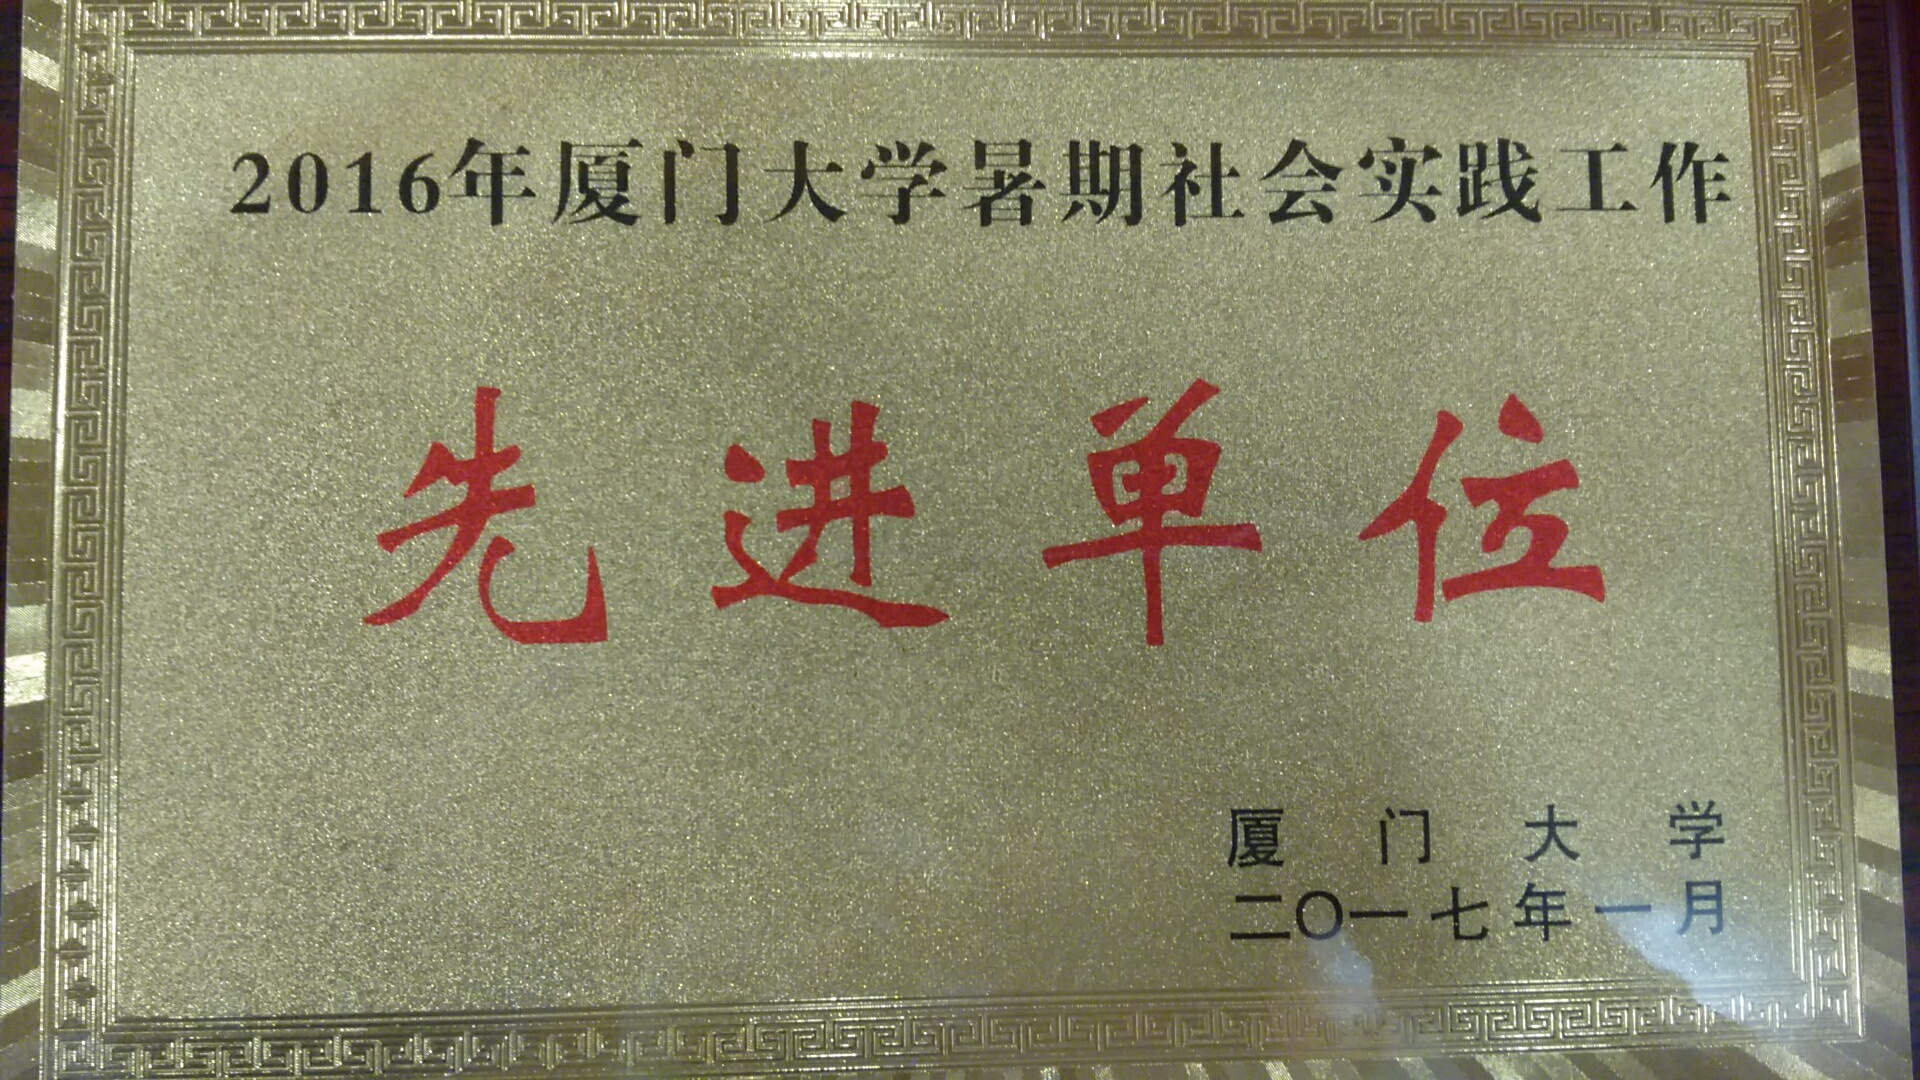 2016年厦门大学暑期社会实践工作
先进单位
厦门大学
二〇一七年一月